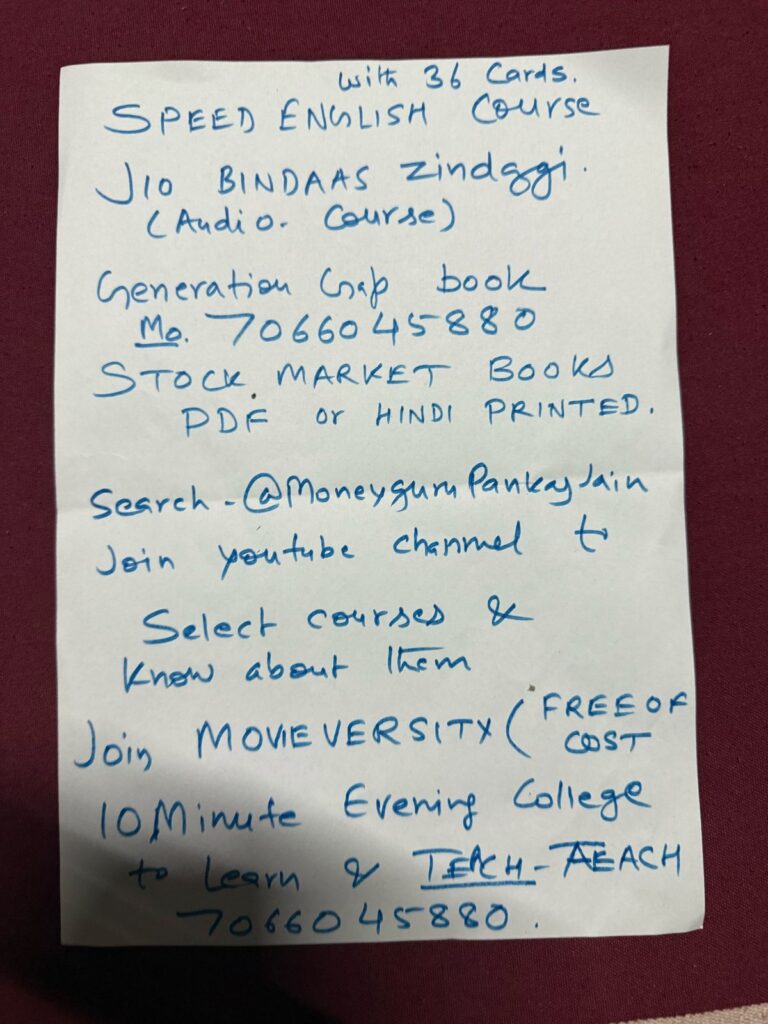 with 36 Cards.
SPEED ENGLISH Course
JIO BINDAAS Zindggi.
(Audio. Course)
Generation Gap book
Mo. 7066045880
STOCK MARKET BOOKS
PDF or HINDI PRINTED.
Search - @MoneyguruPankajJain
Join youtube channel to
Select courses &
Know about them
Join MOVIEVERSITY (FREE OF
COST
10 Minute Evening College
to Learn & TEACH - TEACH
7066045880.